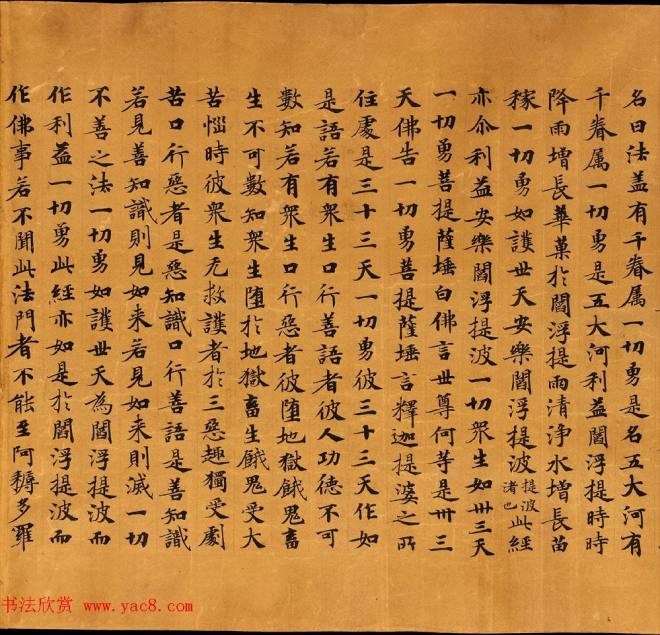 名曰法盖有千眷属一切勇是名五大河有
千眷属一切勇是五大河利益閻浮提時時
降雨增長華菓於閻浮提雨清浄水增長苗
稼一切勇如護世天安樂閻浮提波提波渚也此經
亦尒利益安樂閻浮提波一切衆生如卅三天
一切勇菩提薩埵白佛言世尊何等是卅三
天佛告一切勇菩提薩埵言釋迦提婆之所
住處是三十三天一切勇彼三十三天作如
是語若有衆生口行善語者彼人功德不可
數知若有衆生口行惡者彼堕地獄餓鬼畜
生不可數知衆生堕於地獄畜生餓鬼受大
苦惱時彼衆生无救護者於三惡趣獨受劇
苦口行惡者是惡知識口行善語是善知識
若見善知識則見如来若見如来則滅一切
不善之法一切勇如護世天為閻浮提波而
作利益一切勇此經亦如是於閻浮提波而
作佛事若不聞此法門者不能至阿耨多羅
书法欣赏 www.yac8.com